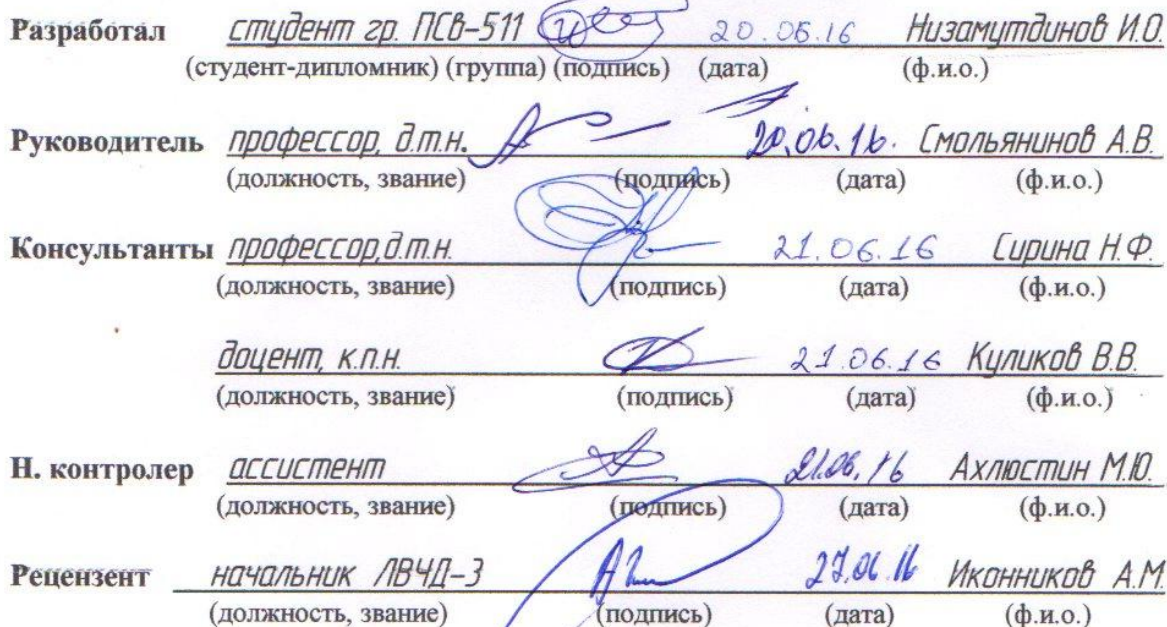 Разработал студент гр. ПСв-511 20.06.16 Низамутдинов И.О.
(студент-дипломник) (группа) (подпись) (дата) (ф.и.о.)
Руководитель профессор, д.т.н. 20.06.16. Смольянинов А.В.
(должность, звание) (подпись) (дата) (ф.и.о.)
Консультанты профессор,д.т.н. 21.06.16 Сирина Н.Ф.
(должность, звание) (подпись) (дата) (ф.и.о.)
доцент, к.п.н. 21.06.16 Куликов В.В.
(должность, звание) (подпись) (дата) (ф.и.о.)
Н. контролер ассистент 21.06.16 Ахлюстин М.Ю.
(должность, звание) (подпись) (дата) (ф.и.о.)
Рецензент начальник ЛВЧД-3 27.06.16 Иконников А.М.
(должность, звание) (подпись) (дата) (ф.и.о.)